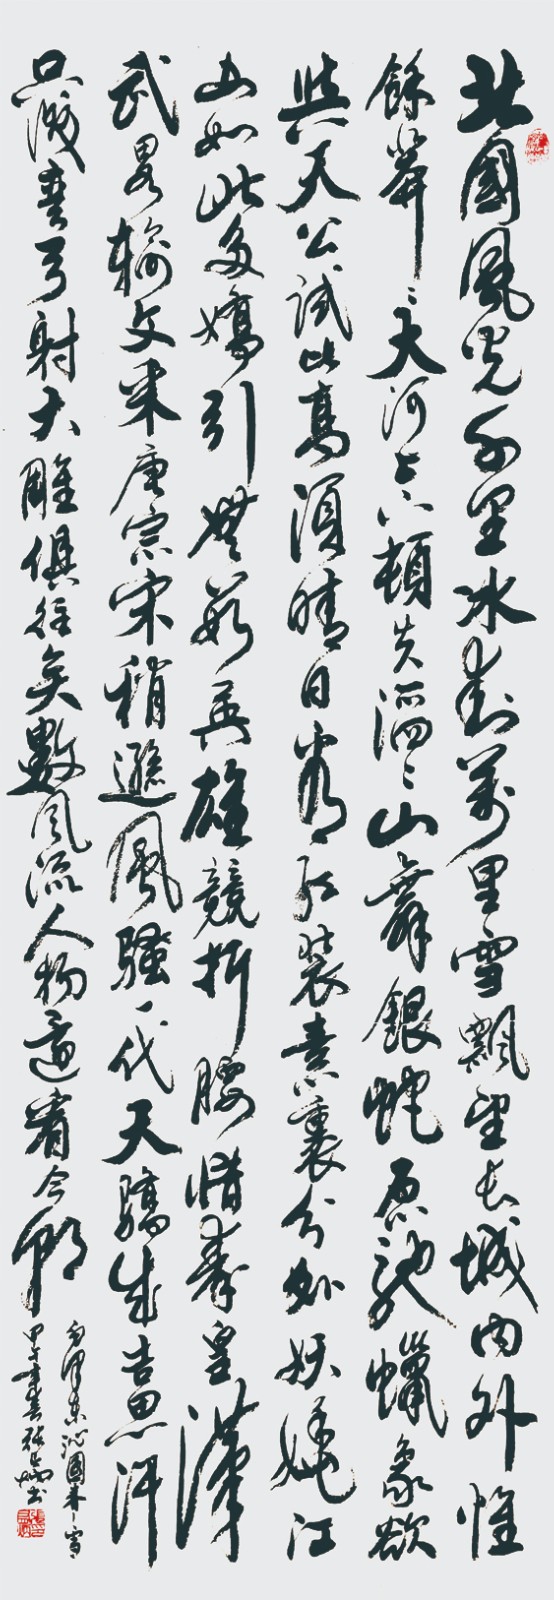 北國風光千里冰封萬里雪飄望長城内外惟
餘莽〻大河上下頓失滔〻山舞銀蛇原馳蠟象欲
與天公試比高須晴日看紅裝素裹分外妖嬈江
山如此多嬌引無數英雄競折腰惜秦皇漢
武畧輸文采唐宗宋稍遜風騷一代天驕成吉思汗
只識彎弓射大雕俱往矣數風流人物還看今朝
毛澤東沁園春雪
甲午年春張书